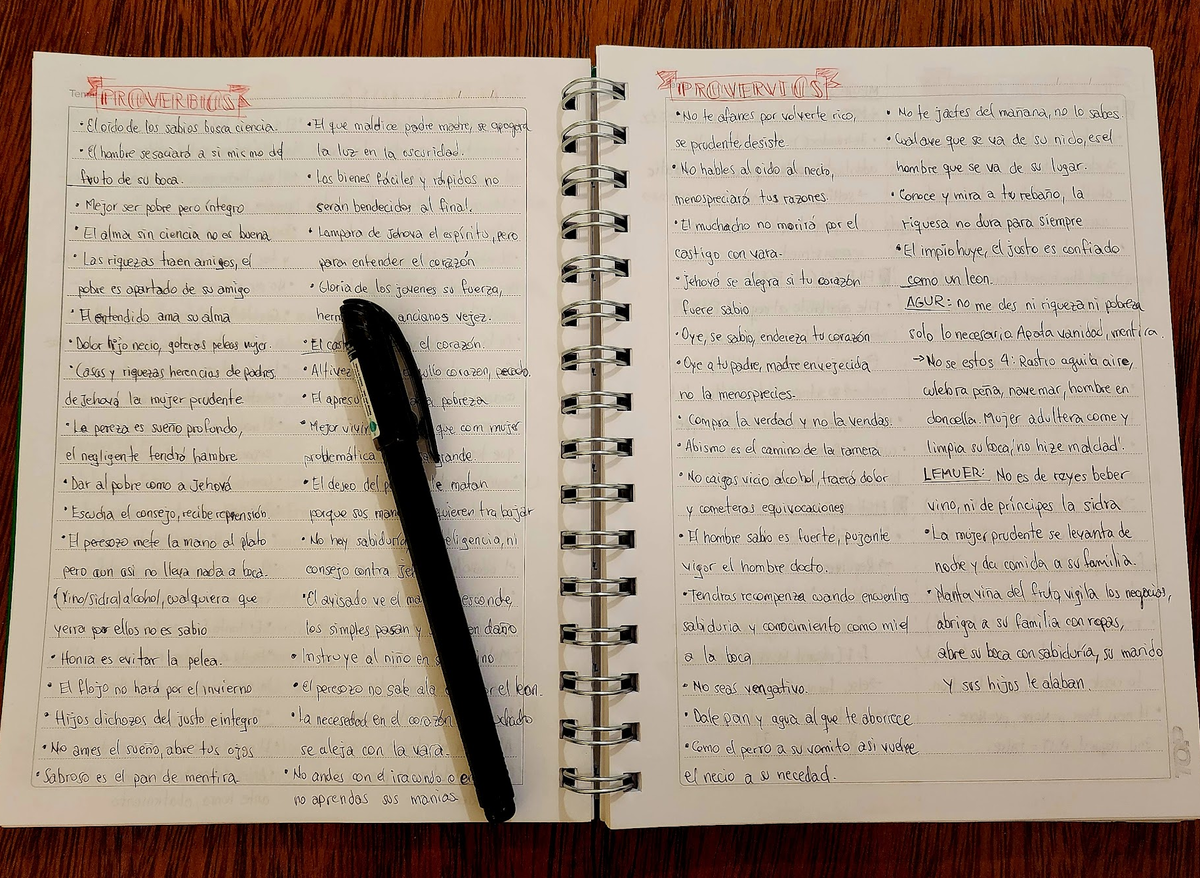 PROVERBIOS
• El oído de los sabios busca ciencia.
• El hombre se saciará a si mismo del
fruto de su boca.
• Mejor ser pobre pero íntegro
• El alma sin ciencia no es buena
• Las riquezas traen amigos, el
pobre es apartado de su amigo
• El entendido ama su alma
• Dolor hijo necio, goteras peleas mujer.
• Casas y riquezas herencias de padres
de Jehová la mujer prudente
• La pereza es sueño profundo,
el negligente tendrá hambre
• Dar al pobre como a Jehová
• Escucha el consejo, recibe reprensión
• El peresozo mete la mano al plato
pero aun asi no lleva nada a boca.
(Vino/sidra) alcohol, cualquiera que
yerra por ellos no es sabio
• Honra es evitar la pelea.
• El flojo no hará por el invierno
• Hijos dichozos del justo e integro
• No ames el sueño, abre tus ojos
• Sabroso es el pan de mentira
• El que maldice padre madre, se apagará
la luz en la oscuridad.
• Los bienes fáciles y rápidos no
serán bendecidos al final.
• Lampara de Jehova el espíritu, pero
para entender el corazón
• Gloria de los jovenes su fuerza,
ancianos vejez.
• El el corazón.
• corazon, pecado.
• El pobreza
• Mejor que com mujer
problemática grande.
• El deseo del matan
porque sus quieren trabajar
• No hay ni
consejo contra
• El avisado ve el esconde,
los simples pasan y daño
• Instruye al niño en
• el peresozo no sale a la el leon.
• La necesedad en el corazón
se aleja con la vara.
• No andes con el iracundo o
no aprendas sus manias
PROVERVIOS
• No te afanes por volverte rico,
se prudente, desiste.
• No hables al oido al necio,
menospreciará tus razones
• El muchacho no morirá por el
castigo con vara.
• Jehová se alegra si tu corazón
fuere sabio
• Oye, se sabio, endereza tu corazón
• Oye a tu padre, madre envejecida
no la menosprecies.
• Compra la verdad y no la vendas.
• Abismo es el camino de la ramera
• No caigas vicio alcohol, traerá dolor
y cometeras equivocaciones
• El hombre sabio es fuerte, pujante
vigor el hombre docto.
• Tendras recompenza cuando encuentres
sabiduria y conocimiento como miel
a la boca
• No seas vengativo.
• Dale pan y agua al que te aborrece
• Como el perro a su vomito asi vuelve
el necio a su necedad.
• No te jactes del mañana, no lo sabes.
• Cual ave que se va de su nido, es el
hombre que se va de su lugar.
• Conoce y mira a tu rebaño, la
riquesa no dura para siempre
• El impio huye, el justo es confiado
como un leon.
AGUR: no me des ni riqueza ni pobreza
solo lo necesario. Aparta vanidad, mentira.
→ No se estos 4: Rastro aguila aire,
culebra peña, nave mar, hombre en
doncella. Mujer adultera come y
limpia su boca, no hize maldad.
LEMUER: No es de reyes beber
vino, ni de príncipes la sidra
• La mujer prudente se levanta de
noche y da comida a su familia.
• Planta viña del fruto, vigila los negocios,
abriga a su familia con ropas,
abre su boca con sabiduría, su marido
y sus hijos le alaban.